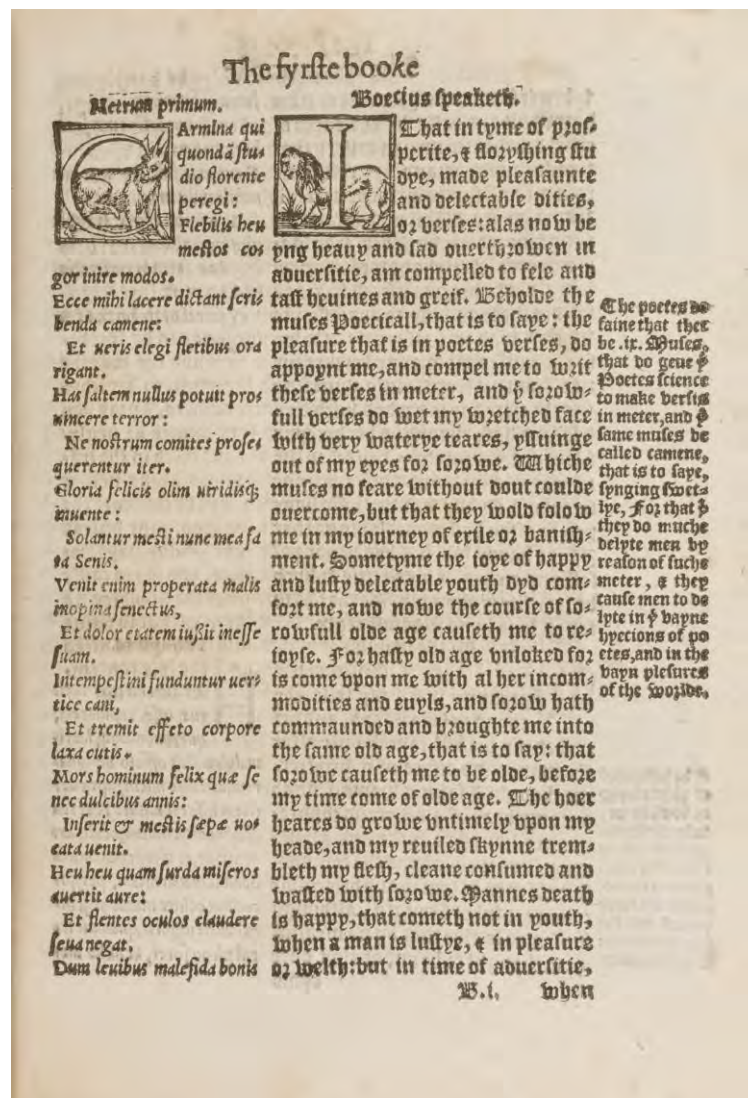 The fyrste booke
Metrum primum.
CArmina qui
quondã stu-
dio florente
peregi:
Flebilis heu
mestos co-
gor inire modos.
Ecce mihi lacere dictant scri-
benda camene:
Et ueris elegi fletibus ora
rigant.
Has saltem nullus potuit pro-
uincere terror:
Ne nostrum comites prose-
querentur iter.
Gloria felicis olim uiridisq;
iuuente:
Solantur mesti nunc mea fa
ta Senis.
Venit enim properata malis
inopina senectus,
Et dolor etatem iußit inesse
suam.
Intempestini funduntur uer-
tice cani,
Et tremit effeto corpore
laxa cutis.
Mors hominum felix quæ se
nec dulcibus annis:
Inserit & mestis sæpæ uo-
cata uenit.
Heu heu quam surda miseros
auertit aure:
Et flentes oculos claudere
seua negat.
Dum leuibus malefida bonis
Boecius speaketh.
I That in tyme of pros-
perite, & floryshing stu
dye, made pleasaunte
and delectable dities,
or verses: alas now be
yng heauy and sad ouerthrowen in
aduersitie, am compelled to fele and
tast heuines and greif. Beholde the
muses Poeticall, that is to saye: the
pleasure that is in poetes verses, do
appoynt me, and compel me to writ
these verses in meter, and þͤ sorow-
full verses do wet my wretched face
with very waterye teares, yssuinge
out of my eyes for sorowe. Whiche
muses no feare without dout coulde
ouercome, but that they wold folow
me in my iourney of exile or banish-
ment. Sometyme the ioye of happy
and lusty delectable youth dyd com-
fort me, and nowe the course of so-
rowfull olde age causeth me to re-
ioyse. For hasty old age vnloked for
is come vpon me with al her incom-
modities and euyls, and sorow hath
commaunded and broughte me into
the same old age, that is to say: that
sorowe causeth me to be olde, before
my time come of olde age. The hoer
heares do growe vntimely vpon my
heade, and my reuiled skynne trem-
bleth my flesh, cleane consumed and
wasted with sorowe. Mannes death
is happy, that cometh not in youth,
when a man is lustye, & in pleasure
or welth: but in time of aduersitie,
B.i. when
The poetes do
faine that ther
be .ix. Muses,
that do geue þͤ
Poetes science
to make verses
in meter, and þͤ
same muses be
called camene,
that is to saye,
synging swet-
lye, For that þͤ
they do muche
delyte men by
reason of suche
meter, & they
cause men to de
lyte in þͤ vayne
hyections of po
etes, and in the
vayn plesures
of the worlde.